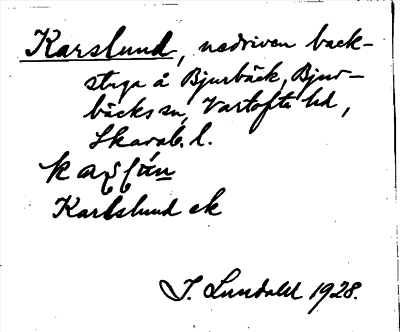 Karslund, nedriven back-
stuga å Bjurbäck, Bjur-
bäcks sn, Vartofta hd,
Skarab. l.
Karlslund ek
J. Lundahl 1928.